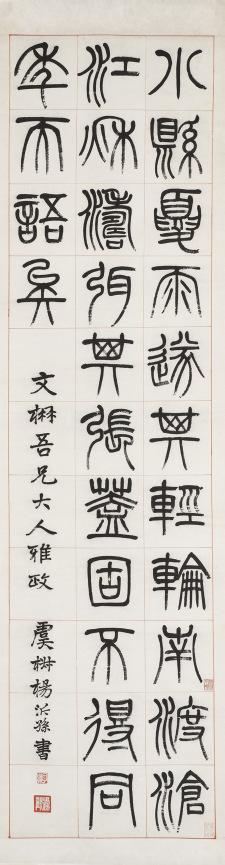 水縣夏雨遂其輕輪南渡滄
江秋濤弭其張蓋固不得同
年而語矣
文楙吾兄大人雅政
虞 楊沂孫書